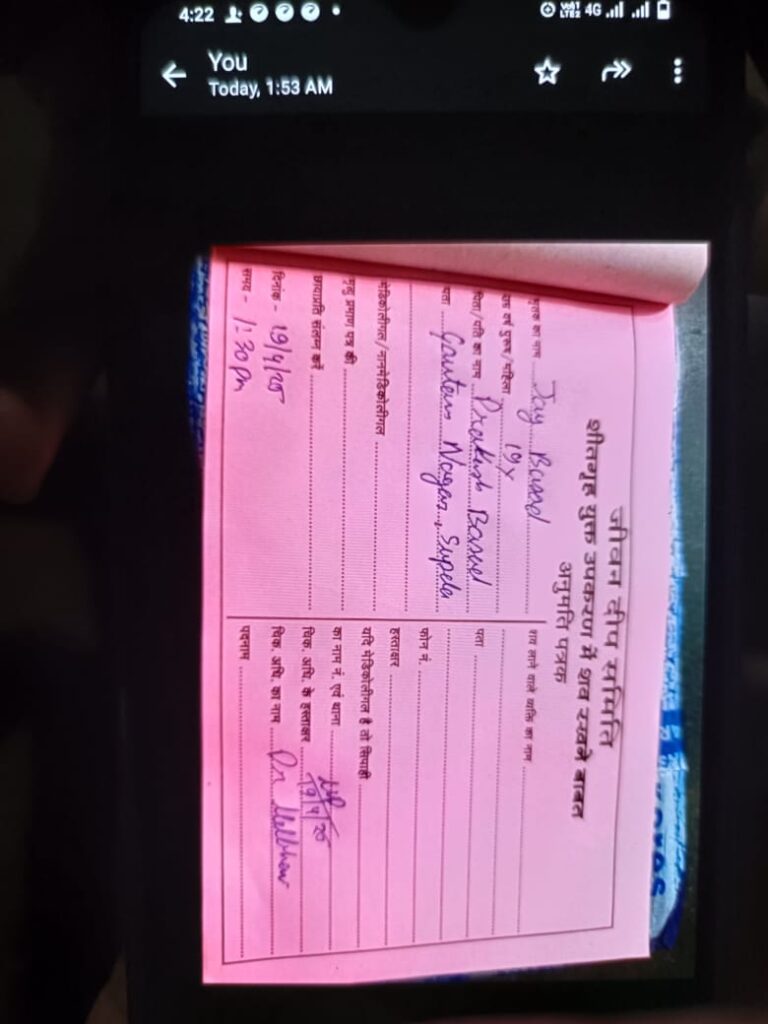 4:22
4G
You
Today, 1:53 AM
जीवन दीप समिति
शीतगृह युक्त उपकरण में शव रखने बाबत
अनुमति पत्रक
मृतक का नाम ..... Jay
वर्ष पुरूष/महिला 19y
पिता/पति का नाम ..... Prakash
पता ..... Nagar, Supela
मेडिकोलीगल/नानमेडिकोलीगल
मृत्यु प्रमाण पत्र की
छायाप्रति संलग्न करें
दिनांक - 19/4/25
समय - 1:30 pm
शव लाने वाले व्यक्ति का नाम
पता
फोन नं.
हस्ताक्षर
यदि मेडिकोलीगल है तो सिपाही
का नाम नं. एवं थाना
चिक. अधि. के हस्ताक्षर
चिक. अधि. का नाम ..... Dr
पदनाम